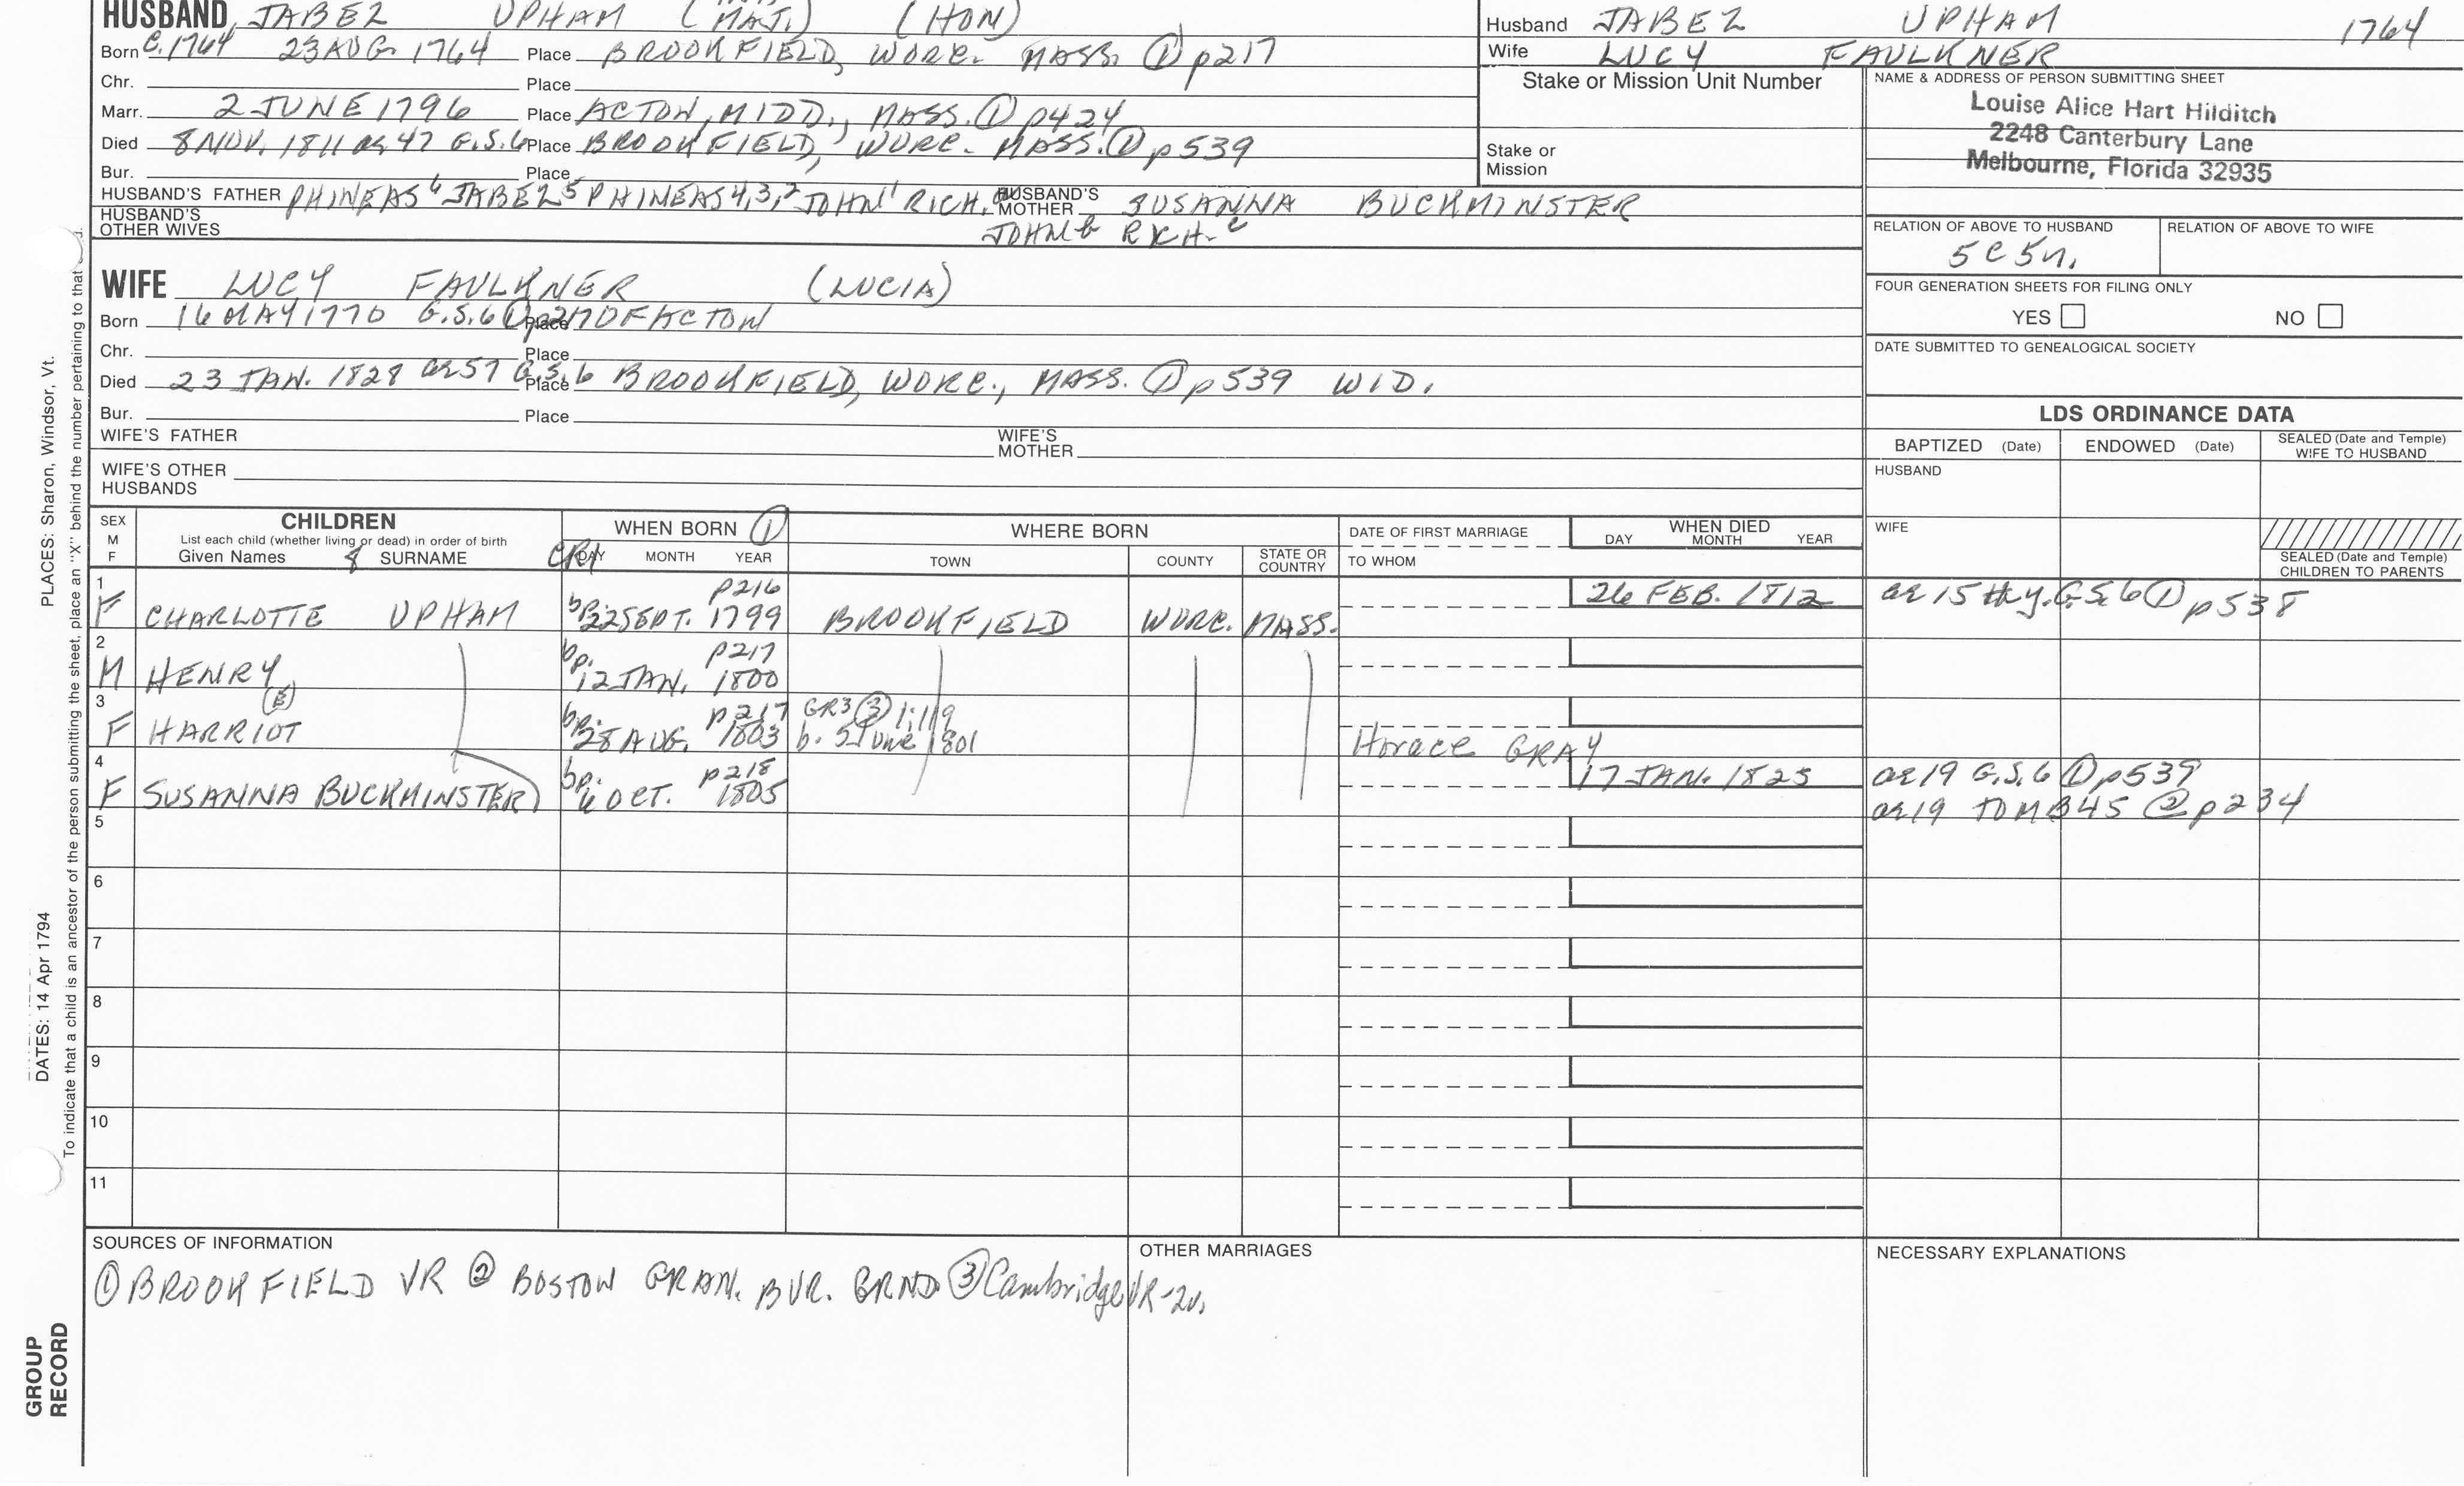 HUSBAND JABEZ UPHAM (MAJ.) (HON)
Born C.1764 23 AUG. 1764 Place BROOKFIELD, WORC. MASS. ① p217
Chr. Place
Marr. 2 JUNE 1796 Place ACTON, MIDD., MASS. ① p424
Died 8 NOV. 1811 ae 47 G.S.6 Place BROOKFIELD, WORC. MASS. ① p539
Bur. Place
HUSBAND'S FATHER PHINEAS 6 JABEZ 5 PHINEAS 4,3,2 JOHN 1 RICH. HUSBAND'S MOTHER SUSANNA BUCKMINSTER
HUSBAND'S OTHER WIVES JOHN b RICH. c
Husband JABEZ UPHAM 1764
Wife LUCY FAULKNER
Stake or Mission Unit Number
Stake or Mission
NAME & ADDRESS OF PERSON SUBMITTING SHEET
Louise Alice Hart Hilditch
2248 Canterbury Lane
Melbourne, Florida 32935
RELATION OF ABOVE TO HUSBAND RELATION OF ABOVE TO WIFE
5C5r.
FOUR GENERATION SHEETS FOR FILING ONLY
YES NO
DATE SUBMITTED TO GENEALOGICAL SOCIETY
WIFE LUCY FAULKNER (LUCIA)
Born 16 MAY 1770 G.S.6 ① p217 Place OF ACTON
Chr. Place
Died 23 JAN. 1828 ae 57 G.S.6 Place BROOKFIELD, WORC., MASS. ① p539 WID.
Bur. Place
WIFE'S FATHER WIFE'S MOTHER
WIFE'S OTHER HUSBANDS
LDS ORDINANCE DATA
BAPTIZED (Date) ENDOWED (Date) SEALED (Date and Temple) WIFE TO HUSBAND
HUSBAND
WIFE
SEALED (Date and Temple) CHILDREN TO PARENTS
SEX M F
CHILDREN
List each child (whether living or dead) in order of birth
Given Names & SURNAME
WHEN BORN ①
CR1 DAY MONTH YEAR
WHERE BORN
TOWN COUNTY STATE OR COUNTRY
DATE OF FIRST MARRIAGE
TO WHOM
WHEN DIED
DAY MONTH YEAR
1 F CHARLOTTE UPHAM bp. 22 SEPT. 1799 p216 BROOKFIELD WORC. MASS. 26 FEB. 1812 ae 15 th y. G.S.6 ① p538
2 M HENRY bp. 12 JAN. 1800 p217
3 F HARRIOT (E) bp. 28 AUG. 1803 p217 GR3 ③ 1:119
b. 5 June 1801 Horace GRAY
4 F SUSANNA BUCKMINSTER bp. 6 OCT. 1805 p218 17 JAN. 1825 ae 19 G.S.6 ① p539
ae 19 TOMB 45 ② p234
5
6
7
8
9
10
11
SOURCES OF INFORMATION
① BROOKFIELD VR ② BOSTON GRAN. BUR. GRND ③ Cambridge VR-2v.
OTHER MARRIAGES
NECESSARY EXPLANATIONS
PLACES: Sharon, Windsor, Vt.
DATES: 14 Apr 1794
To indicate that a child is an ancestor of the person submitting the sheet, place an "X" behind the number pertaining to that
GROUP RECORD